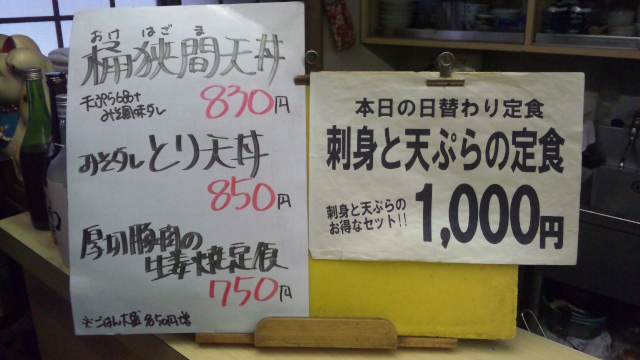 おけ はざま
桶狭間天丼
天ぷら6品+
みそ風味タレ
830円
みそダレとり天丼
850円
厚切豚肉の
生姜焼定食
750円
本日の日替わり定食
刺身と天ぷらの定食
刺身と天ぷらの
お得なセット!!
1,000円